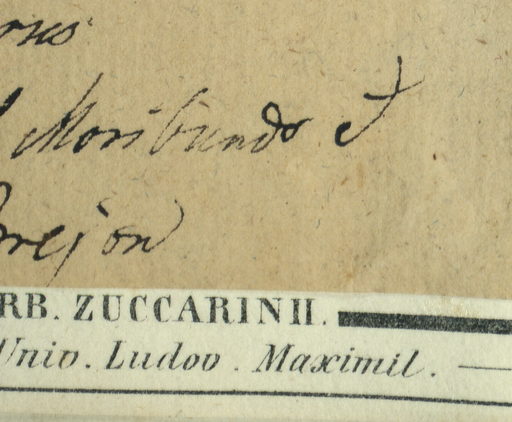 Moribundo et
RB. ZUCCARINII.
Univ. Ludov. Maximil.